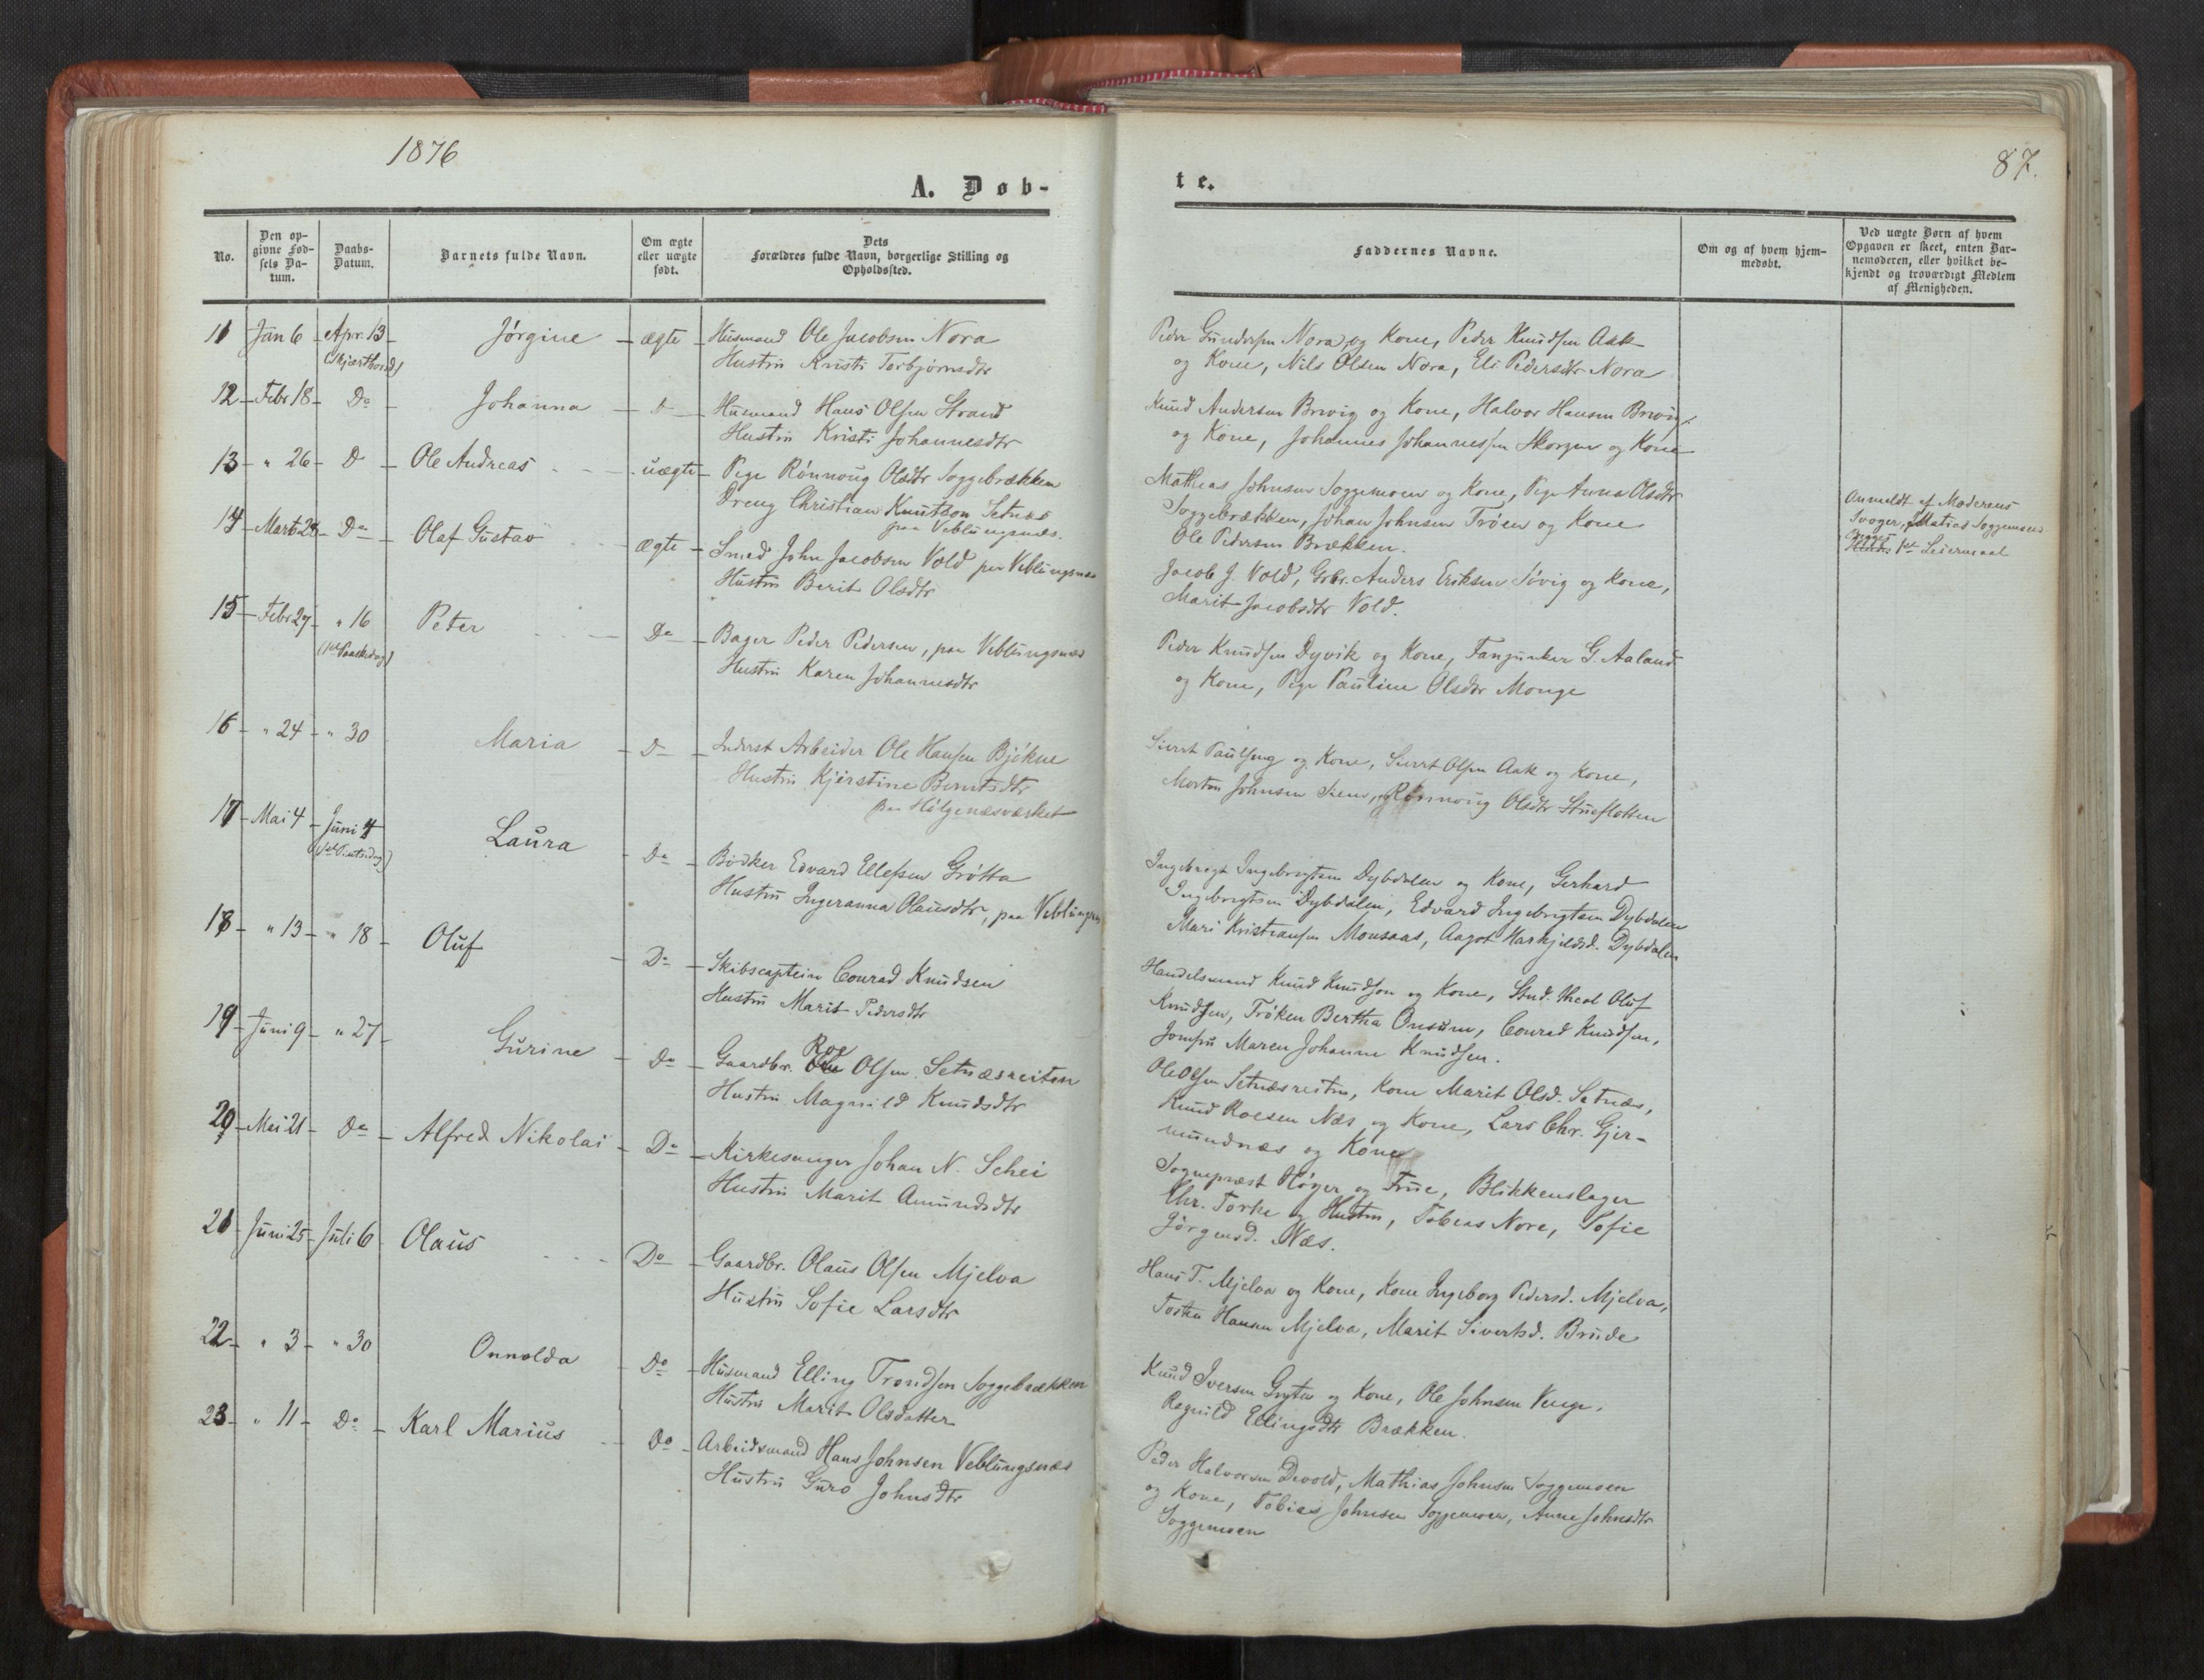 1876
87.
A. Døb-
te.
No.
Den op-
givne Fød-
sels Da-
tum.
Daabs-
Datum.
Barnets fulde Navn.
Om ægte
eller uægte
født.
Dets
Forældres fulde Navn, borgerlige Stilling og
Opholdssted.
Faddernes Navne.
Om og af hvem hjem-
medøbt.
Ved uægte Børn af hvem
Opgaven er skeet, enten Bar-
nemoderen, eller hvilket be-
kjendt og troværdigt Medlem
af Menigheden.
11 Jan 6 Apr. 13 Jørgine ægte Husmand Ole Jacobsen Nora
(Skjærthorsd)
Hustru Kristi Torbjørnsdtr
Peder Gundersen Nora og Kone, Peder Knudsen Aak
og Kone, Nils Olsen Nora, Eli Pedersdtr Nora
12 Febr 18 Do Johanna D Husmand Hans Olsen Strand
Hustru Kristi Johannesdtr
Knud Andersen Brevig og Kone, Halvor Hansen Brevig
og Kone, Johannes Johannessen Skorgen og Kone
13 " 26 D Ole Andreas uægte Pige Rønnoug Olsdtr Soggebrækken
Dreng Christian Knutson Setnæs
paa Veblungsnæs.
Mathias Johnsen Soggemoen og Kone, Pige Anna Olsdtr
Soggebrækken, Johan Johnsen Trøen og Kone
Ole Pedersen Brækken.
Anmeldt af Moderens
Svoger, Matias Soggemoen
Begges 1ste Leiermaal
14 Marts 28 Do Olaf Gustav ægte Smed John Jacobsen Vold paa Veblungsnæs
Hustru Berit Olsdtr
Jacob J. Vold, Grbr. Anders Eriksen Søvig og Kone,
Marit Jacobsdtr Vold.
15 Febr 27 " 16 Peter Do Bager Peder Pedersen, paa Veblungsnæs
(1ste Paaskedag)
Hustru Karen Johannesdtr
Peder Knudsen Dyvik og Kone, Fanjunker G. Aaland
og Kone, Pige Pauline Olsdtr Monge
16 " 24 " 30 Maria D Inderst Arbeider Ole Hansen Bjøkne
Hustru Kjerstine Berntsdtr
paa Holgenæsværket
Sivert Paulseng og Kone, Sivert Olsen Aak og Kone,
Morten Johnsen, Rønnoug Olsdtr Stueflotten
17 Mai 4 Juni 4 Laura Do Bødker Edvard Ellefsen Grøtta
(1ste Pintsedag)
Hustru Ingeranna Olausdtr, paa Veblungsn
Ingebrigt Ingebrigtsen Dybdalen og Kone, Gerhard
Ingebrigtsen Dybdalen, Edvard Ingebrigtsen Dybdalen
Mari Kristiansen Monsaas, Aagot Harkjeldsd. Dybdalen
18 " 13 " 18 Oluf Do Skibscaptein Conrad Knudsen
Hustru Marit Pedersdtr
Handelsmand Knud Knudson og Kone, Stud. theol Oluf
Knudsen, Frøken Bertha Onsum, Conrad Knudsen,
Jomfru Maren Johanne Knudsen.
19 Juni 9 " 27 Gurine Do Gaardbr. Roe Olsen Setnæsreiten
Hustru Magnild Knudsdtr
Ole Olsen Setnæsreiten, Kone Marit Olsd. Setnæs,
Knud Roesen Næs og Kone, Lars Chr. Gjer-
mundnæs og Kone
20 Mai 21 Do Alfred Nikolai Do Kirkesanger Johan N. Schei
Hustru Marit Amundsdtr
Sognepræst Høyer og Frue, Blikkenslager
Chr. Torke og Hustru, Tobias Nora, Sofie
Jørgensd. Næs.
21 Juni 25 Juli 6 Olaus Do Gaardbr. Olaus Olsen Mjelva
Hustru Sofie Larsdtr
Hans T. Mjelva og Kone, Kone Ingeborg Pedersd. Mjelva,
Hansen Mjelva, Marit Sivertsd. Brude
22 " 3 " 30 Onnolda Do Husmand Elling Trondsen Soggebrækken
Hustru Marit Olsdatter
Knud Iversen Gryten og Kone, Ole Johnsen Venge,
Ragnild Ellingsdtr Brækken.
23 " 11 Do Karl Marius Do Arbeidsmand Hans Johnsen Veblungsnæs
Hustru Guro Johnsdtr
Peder Halvorsen Devold, Mathias Johnsen Soggemoen
og Kone, Tobias Johnsen Soggemoen, Anne Johnsdtr
Soggemoen